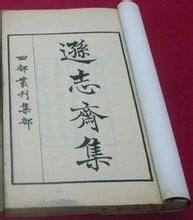 遜志齋集
四部叢刊集部